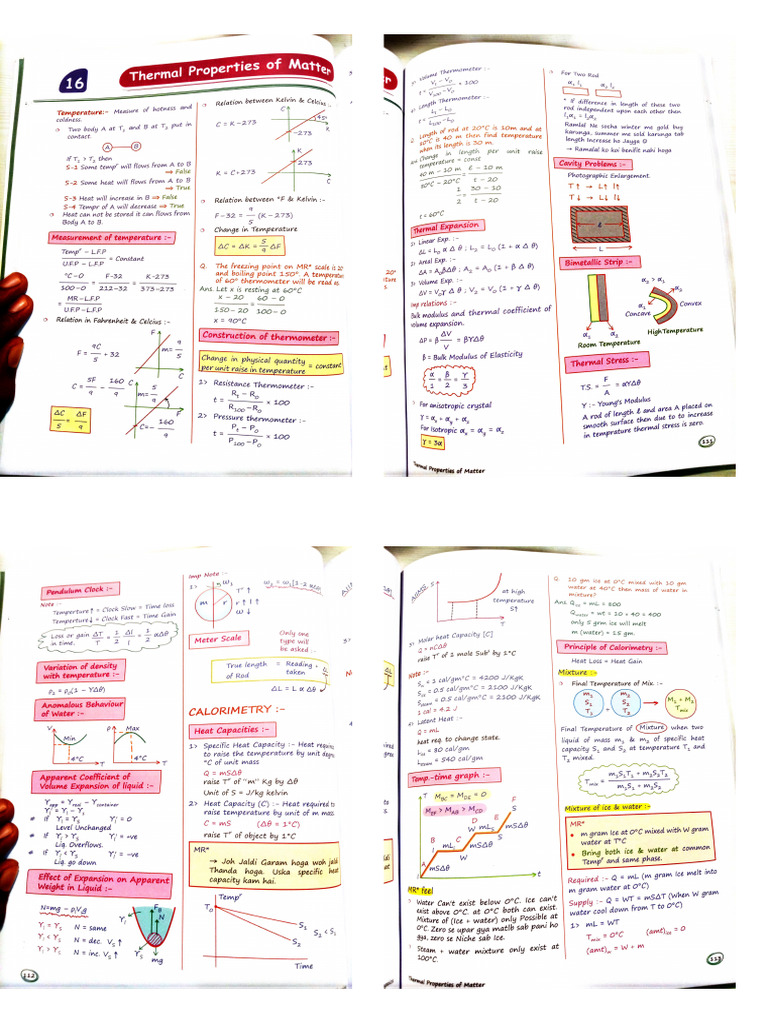 16
Thermal Properties of Matter
Temperature:- Measure of hotness and
coldness.
Two body A at T₁ and B at T₂ put in
contact.
A B
If T₁ > T₂ then
S-1 Some tempʳ will flows from A to B
⇒ False
S-2 Some heat will flows from A to B
⇒ True
S-3 Heat will increase in B ⇒ False
S-4 Tempr of A will decrease ⇒ True
Heat can not be stored it can flows from
Body A to B.
Measurement of temperature :-
Tempʳ – L.F.P / U.F.P – L.F.P = Constant
°C–0 / 100–0 = F–32 / 212–32 = K–273 / 373–273
= MR–L.F.P / U.F.P – L.F.P
Relation in Fahrenheit & Celcius :-
F = 9C/5 + 32
F
m= 9/5
C
C = 5F/9 – 160/9
C
m= 5/9
F
C= – 160/9
ΔC/5 = ΔF/9
Relation between Kelvin & Celcius :-
C = K–273
C
45°
K
–273
K = C+273
K
273
C
Relation between °F & Kelvin :-
F–32 = 9/5 (K–273)
Change in Temperature
ΔC = ΔK = 5/9 ΔF
Q. The freezing point on MR* scale is 20
and boiling point 150°. A temperature
of 60° thermometer will be read as
Ans. Let x is resting at 60°C
x – 20 / 150–20 = 60 – 0 / 100–0
x = 90°C
Construction of thermometer :-
Change in physical quantity / per unit raise in temperature = constant
1> Resistance Thermometer :-
t = R_t – R_0 / R_100 – R_0 × 100
2> Pressure thermometer :-
t = P_t – P_0 / P_100 – P_0 × 100
Volume Thermometer :-
t = V_t – V_0 / V_100 – V_0 × 100
4) Length Thermometer :-
t = L_t – L_0 / L_100 – L_0
Q. Length of rod at 20°C is 10m and at
50°C is 40 m then find temperature
when its length is 30 m.
Change in length per unit raise
temperature = const
t = 60°C
Thermal Expansion
1) Linear Exp. :-
ΔL = L₀ α Δ θ ; L₂ = L₀ (1 + α Δ θ)
2) Areal Exp. :-
ΔA = A₀βΔθ ; A₂ = A₀ (1 + β Δ θ)
3) Volume Exp. :-
ΔV = V₀γ Δ θ ; V₂ = V₀ (1 + γ Δ θ)
Imp relations :-
Bulk modulus and thermal coefficient of
volume expansion.
ΔP = β ΔV/V = βγΔθ
β = Bulk Modulus of Elasticity
α/1 = β/2 = γ/3
For anisotropic crystal
γ = αₓ + αᵧ + α_z
For Isotropic αₓ = αᵧ = α_z
γ = 3α
Thermal Properties of Matter
For Two Rod
α₁ l₁ α₂ l₂
* If difference in length of these two
rod independent upon each other then
l₁α₁ = l₂α₂
Ramlal Ne socha winter me gold buy
karunga, summer me sold karunga tab
length increase ho Jayga
→ Ramalal ko koi benifit nahi hoga
Cavity Problems :-
Photographic Enlargement.
T↑ → L↑ l↑
T↓ → L↓ l↓
l
L
Bimetallic Strip :-
α₂ > α₁
α₂
α₁
Concave
Convex
α₁ α₂
Room Temperature
HighTemperature
Thermal Stress :-
T.S. = F/A = αYΔθ
Y :- Young's Modulus
A rod of length ℓ and area A placed on
smooth surface then due to to increase
in temprature thermal stress is zero.
111
Pendulum Clock :-
Note :-
Temperture↑ = Clock Slow = Time loss
Temperture↓ = Clock Fast = Time Gain
Loss or gain in time. ΔT/T = 1/2 Δl/l = 1/2 αΔθ
Variation of density
with temperature :-
ρ₂ = ρ₀(1 – YΔθ)
Anomalous Behaviour
of Water :-
V
Min
4°C
T
ρ
Max
4°C
T
Apparent Coefficient of
Volume Expansion of liquid :-
V_app = V_real – V_container
Y'ᵢ = Yᵢ – Yₛ
* If Yᵢ = Yₛ Y'ᵢ = 0
Level Unchanged
* If Yᵢ > Yₛ Y'ᵢ = +ve
Liq. Overflows.
* If Yᵢ < Yₛ Y'ᵢ = –ve
Liq. go down
Effect of Expansion on Apparent
Weight in Liquid :-
N=mg – ρᵢVₛg
Yᵢ = Yₛ N = same
Yᵢ < Yₛ N = dec. Vₛ↑
Yᵢ > Yₛ N = inc. Vₛ↑
F_B
N
Yᵢ
Yₛ
mg
112
Imp Note :-
1>
ω₁
m r
T°↑
r ↑ I ↑
ω ↓
Meter Scale
Only one
type will
be asked :-
True length of Rod = Reading taken +
ΔL = L α Δθ
CALORIMETRY :-
Heat Capacities :-
1> Specific Heat Capacity :- Heat required
to raise the temperature by unit degree
°C of unit mass
Q = mSΔθ
raise Tʳ of "m" Kg by Δθ
Unit of S = J/kg kelvin
2> Heat Capacity (C) :- Heat required to
raise temperature by unit of m mass
C = mS (Δθ = 1°C)
raise Tʳ of object by 1°C
MR*
→ Joh Jaldi Garam hoga woh jaldi
Thanda hoga. Uska specific heat
capacity kam hai.
Tempʳ
T₀
S₁
S₂
S₂ < S₁
Time
S
at high
temperature
S↑
T
3) Molar heat Capacity [C]
Q = nCΔθ
raise Tʳ of 1 mole Subˢ by 1°C
Note :-
S_w = 1 cal/gm°C = 4200 J/KgK
S_ice = 0.5 cal/gm°C = 2100 J/KgK
S_steam = 0.5 cal/gm°C = 2100 J/KgK
1 cal = 4.2 J
4) Latent Heat :-
Q = mL
heat req. to change state.
L_ice = 80 cal/gm
L_steam = 540 cal/gm
Temp.-time graph :-
T
M_BC = M_DE = 0
M_EF > M_AB > M_CD
A B C D E F
I
W
W
S
mSΔθ
mL
mSΔθ
mLₛ
mSΔθ
t
MR* feel
Water Can't exist below 0°C. Ice can't
exist above 0°C. at 0°C both can exist.
Mixture of (Ice + water) only Possible at
0°C. Zero se upar gya matlb sab pani ho
gya, zero se Niche sab Ice.
Steam + water mixture only exist at
100°C.
Thermal Properties of Matter
Q. 10 gm ice at 0°C mixed with 10 gm
water at 40°C then mass of water in
mixture?
Ans. Q_ice = mL = 800
Q_water = wt = 10 × 40 = 400
only 5 grm ice will melt
m (water) = 15 gm.
Principle of Calorimetry :-
Heat Loss = Heat Gain
Mixture :-
Final Temperature of Mix :-
m₁ S₁ T₁
m₂ S₂ T₂
M₁ + M₂ T_mix
Final Temperature of Mixture when two
liquid of mass m₁ & m₂ of specific heat
capacity S₁ and S₂ at temperature T₁ and
T₂ mixed.
T_mix = m₁S₁T₁ + m₂S₂T₂ / m₁S₁ + m₂S₂
Mixture of ice & water :-
MR*
m gram Ice at 0°C mixed with W gram
water at T°C
Bring both ice & water at common
Tempʳ and same phase.
Required :- Q = mL (m gram Ice melt into
m gram water at 0°C)
Supply :- Q = WT = mSΔT (When W gram
water cool down from T to 0°C)
1> mL = WT
T_mix = 0°C (amt)_ice = 0
(amt)_w = W + m
113